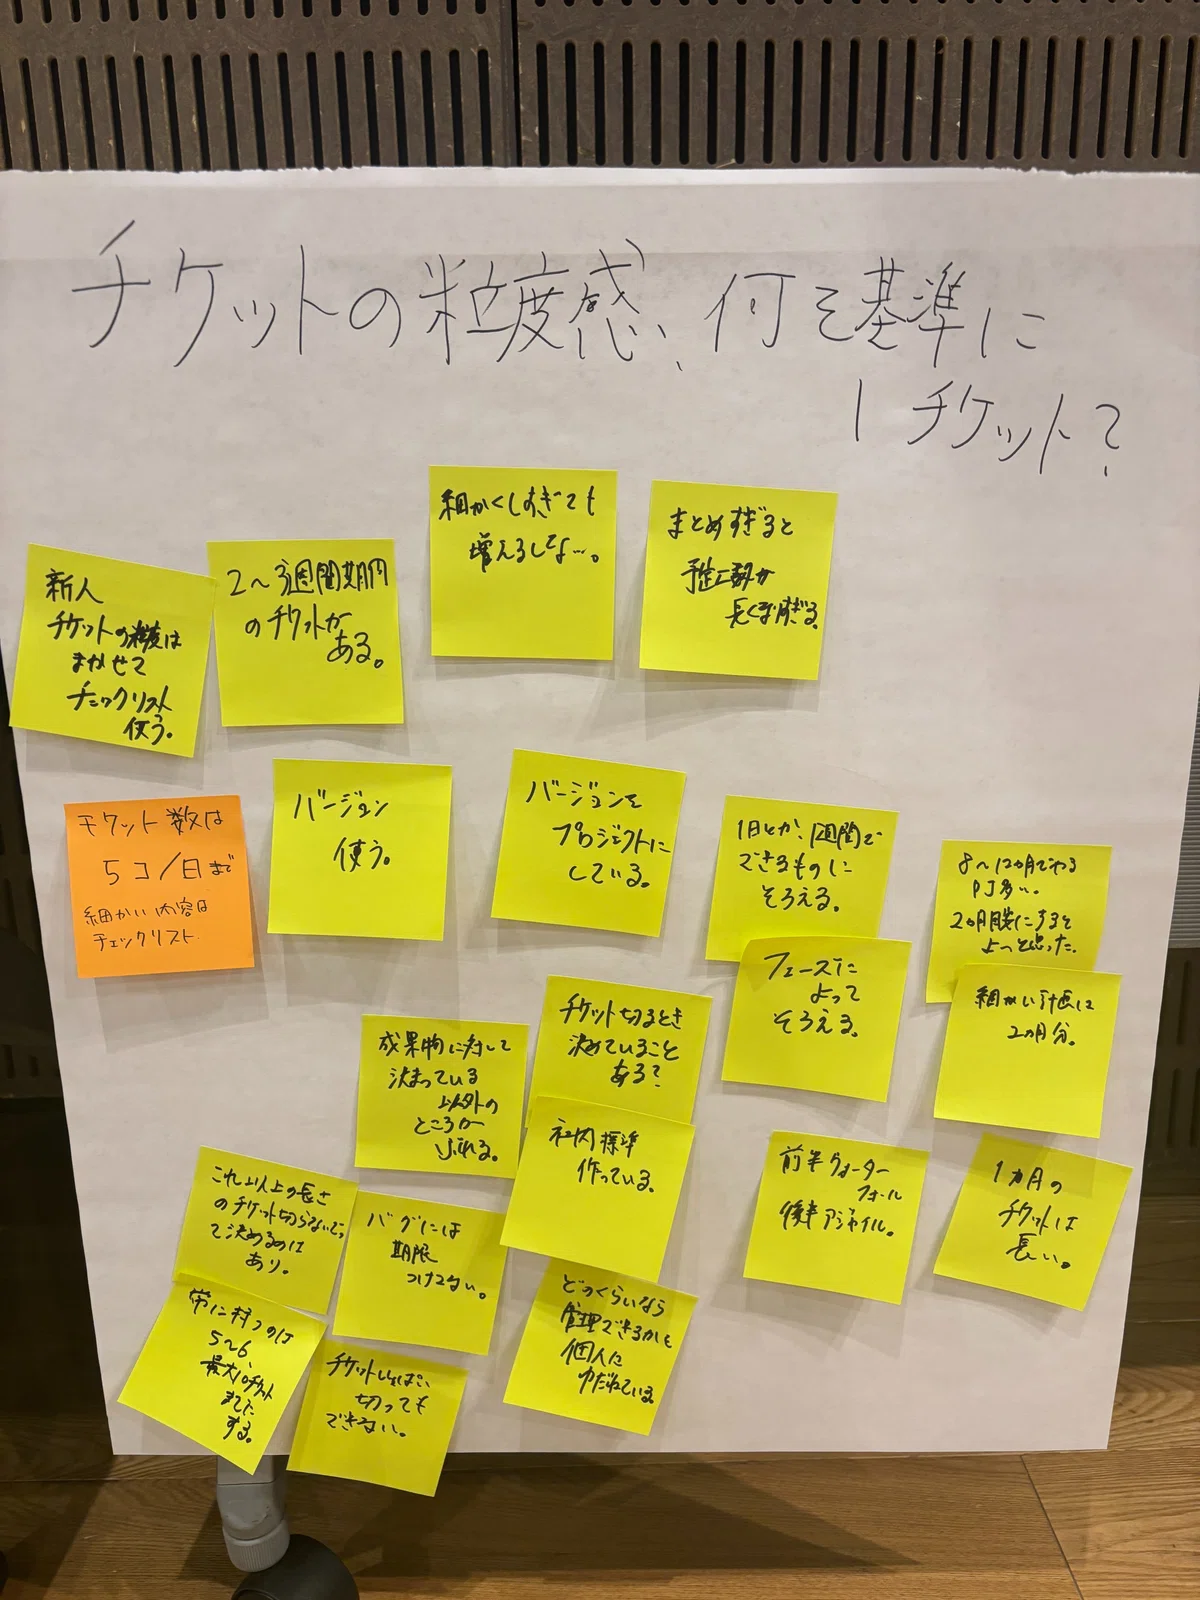 チケットの粒度感、何を基準に
1チケット?
細かくしすぎても
増えるしな…。
まとめすぎると
予定工数が
長くなりすぎる。
新人
チケットの粒度は
まかせて
チェックリスト
使う。
2〜3週間期間
のチケットが
ある。
チケット数は
5コ/日まで
細かい内容は
チェックリスト
バージョン
使う。
バージョンを
プロジェクトに
している。
1日とか、1週間で
できるものに
そろえる。
8〜12ヵ月でやる
PJ多い。
2ヵ月前後にすると
よいと思った。
フェーズに
よって
そろえる。
細かい計画は
2ヵ月分。
成果物に対して
決まっている
以外の
ところが
ぶれる。
チケット切るとき
決めていること
ある?
社内標準
作っている。
前半ウォーター
フォール
後半アジャイル。
1ヵ月の
チケットは
長い。
これ以上の長さ
のチケット切らないでっ
て決めるのは
あり。
バグには
期限
つけてない。
どのくらいなら
管理できるかを
個人に
ゆだねている。
常に持つのは
5〜6、
最大10チケット
までに
する。
チケットいっぱい
切っても
できない。